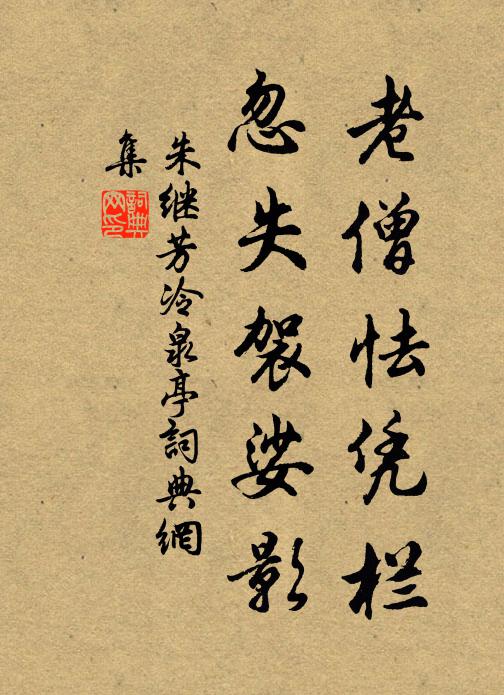 老僧怯凭栏
忽失袈娑影
朱继芳冷泉亭詞典網
集
詞典
网印